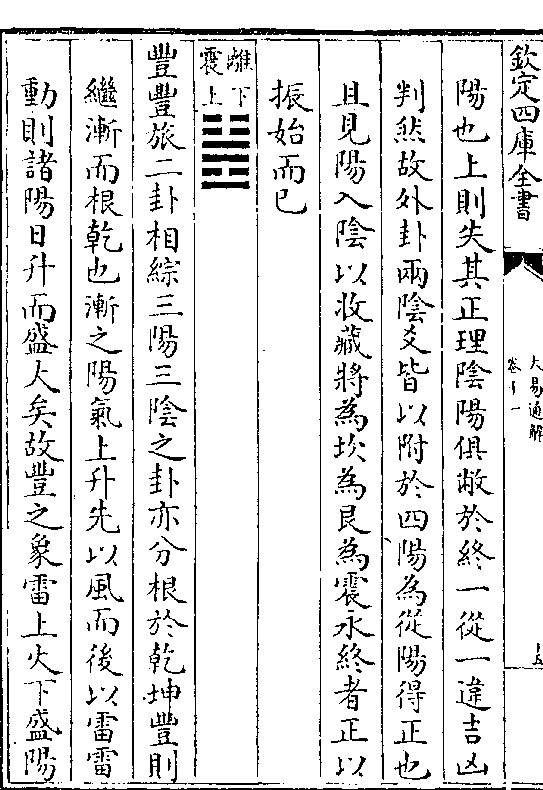 欽定四庫全書
大易通解
卷十一
十五
陽也上則失其正理陰陽俱敝於終一從一違吉凶
判然故外卦兩陰爻皆以附於四陽為從陽得正也
且見陽入陰以收藏將為坎為艮為震永終者正以
振始而已
離下
震上
豐豐旅二卦相綜三陽三陰之卦亦分根於乾坤豐則
繼漸而根乾也漸之陽氣上升先以風而後以雷雷
動則諸陽日升而盛大矣故豐之象雷上火下盛陽